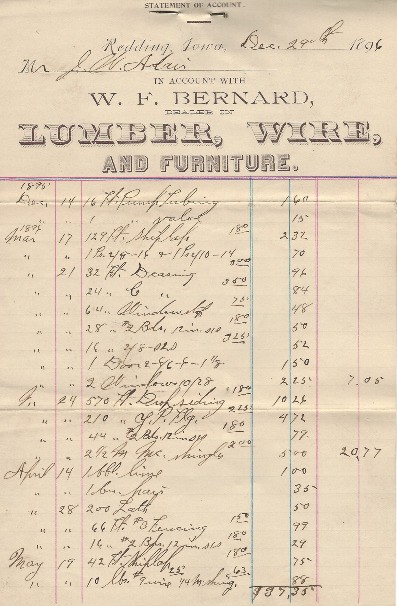 STATEMENT OF ACCOUNT.
Redding, Iowa, Dec. 29th 1896
Mr J. W. Adair
IN ACCOUNT WITH
W. F. BERNARD,
DEALER IN
LUMBER, WIRE,
AND FURNITURE.
1895
Dec. 14 16 ft. Pump Tubing 1 60
" " 1 " valve 15
1896
Mar 17 129 ft. Shiplap 180 2 32
" " 1 Pc 2/8-16 & 1 Pc 4/10-14 70
" " 21 32 ft. 300 96
" " 24 " C " 350 84
" " 64 " 75 48
" " 28 " #2 Bds. 12 in S1S 180 50
" " 16 " 2/8- S2S 325 52
" " 1 Door 2-8/6-8-1 3/8 1 50
" " 2 Windows 10/28 2 25 7,05
" 24 570 ft. Drop siding 180 10 26
" " 210 " Y. P. Flg. 225 4 72
" " 44 " #2 Bds. 12 in S1S 180 79
" " 2 1/2 M shingles 200 5 00 20,77
April 14 1 bbl. lime 1 00
" " 1 bu. hair 35
" 28 200 Lath 50
" " 66 ft. #3 Fencing 150 99
" " 16 " #2 Bds. 12 in S1S 180 29
May 19 42 ft. Shiplap 180 75
" " 10 lbs. 88